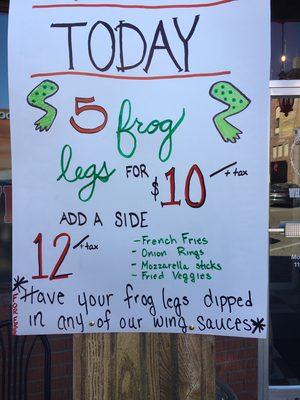 TODAY
5 frog
legs FOR $10 + tax
ADD A SIDE
12 + tax
- French Fries
- Onion Rings
- Mozzarella sticks
- Fried Veggies
*Have your frog legs dipped
in any of our wing sauces*